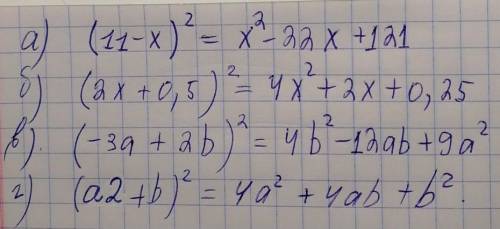 а) (11-x)² = x²-22x+121
б) (2x+0,5)² = 4x²+2x+0,25
в). (-3a+2b)² = 4b²-12ab+9a²
г) (a2+b)² = 4a²+4ab+b².